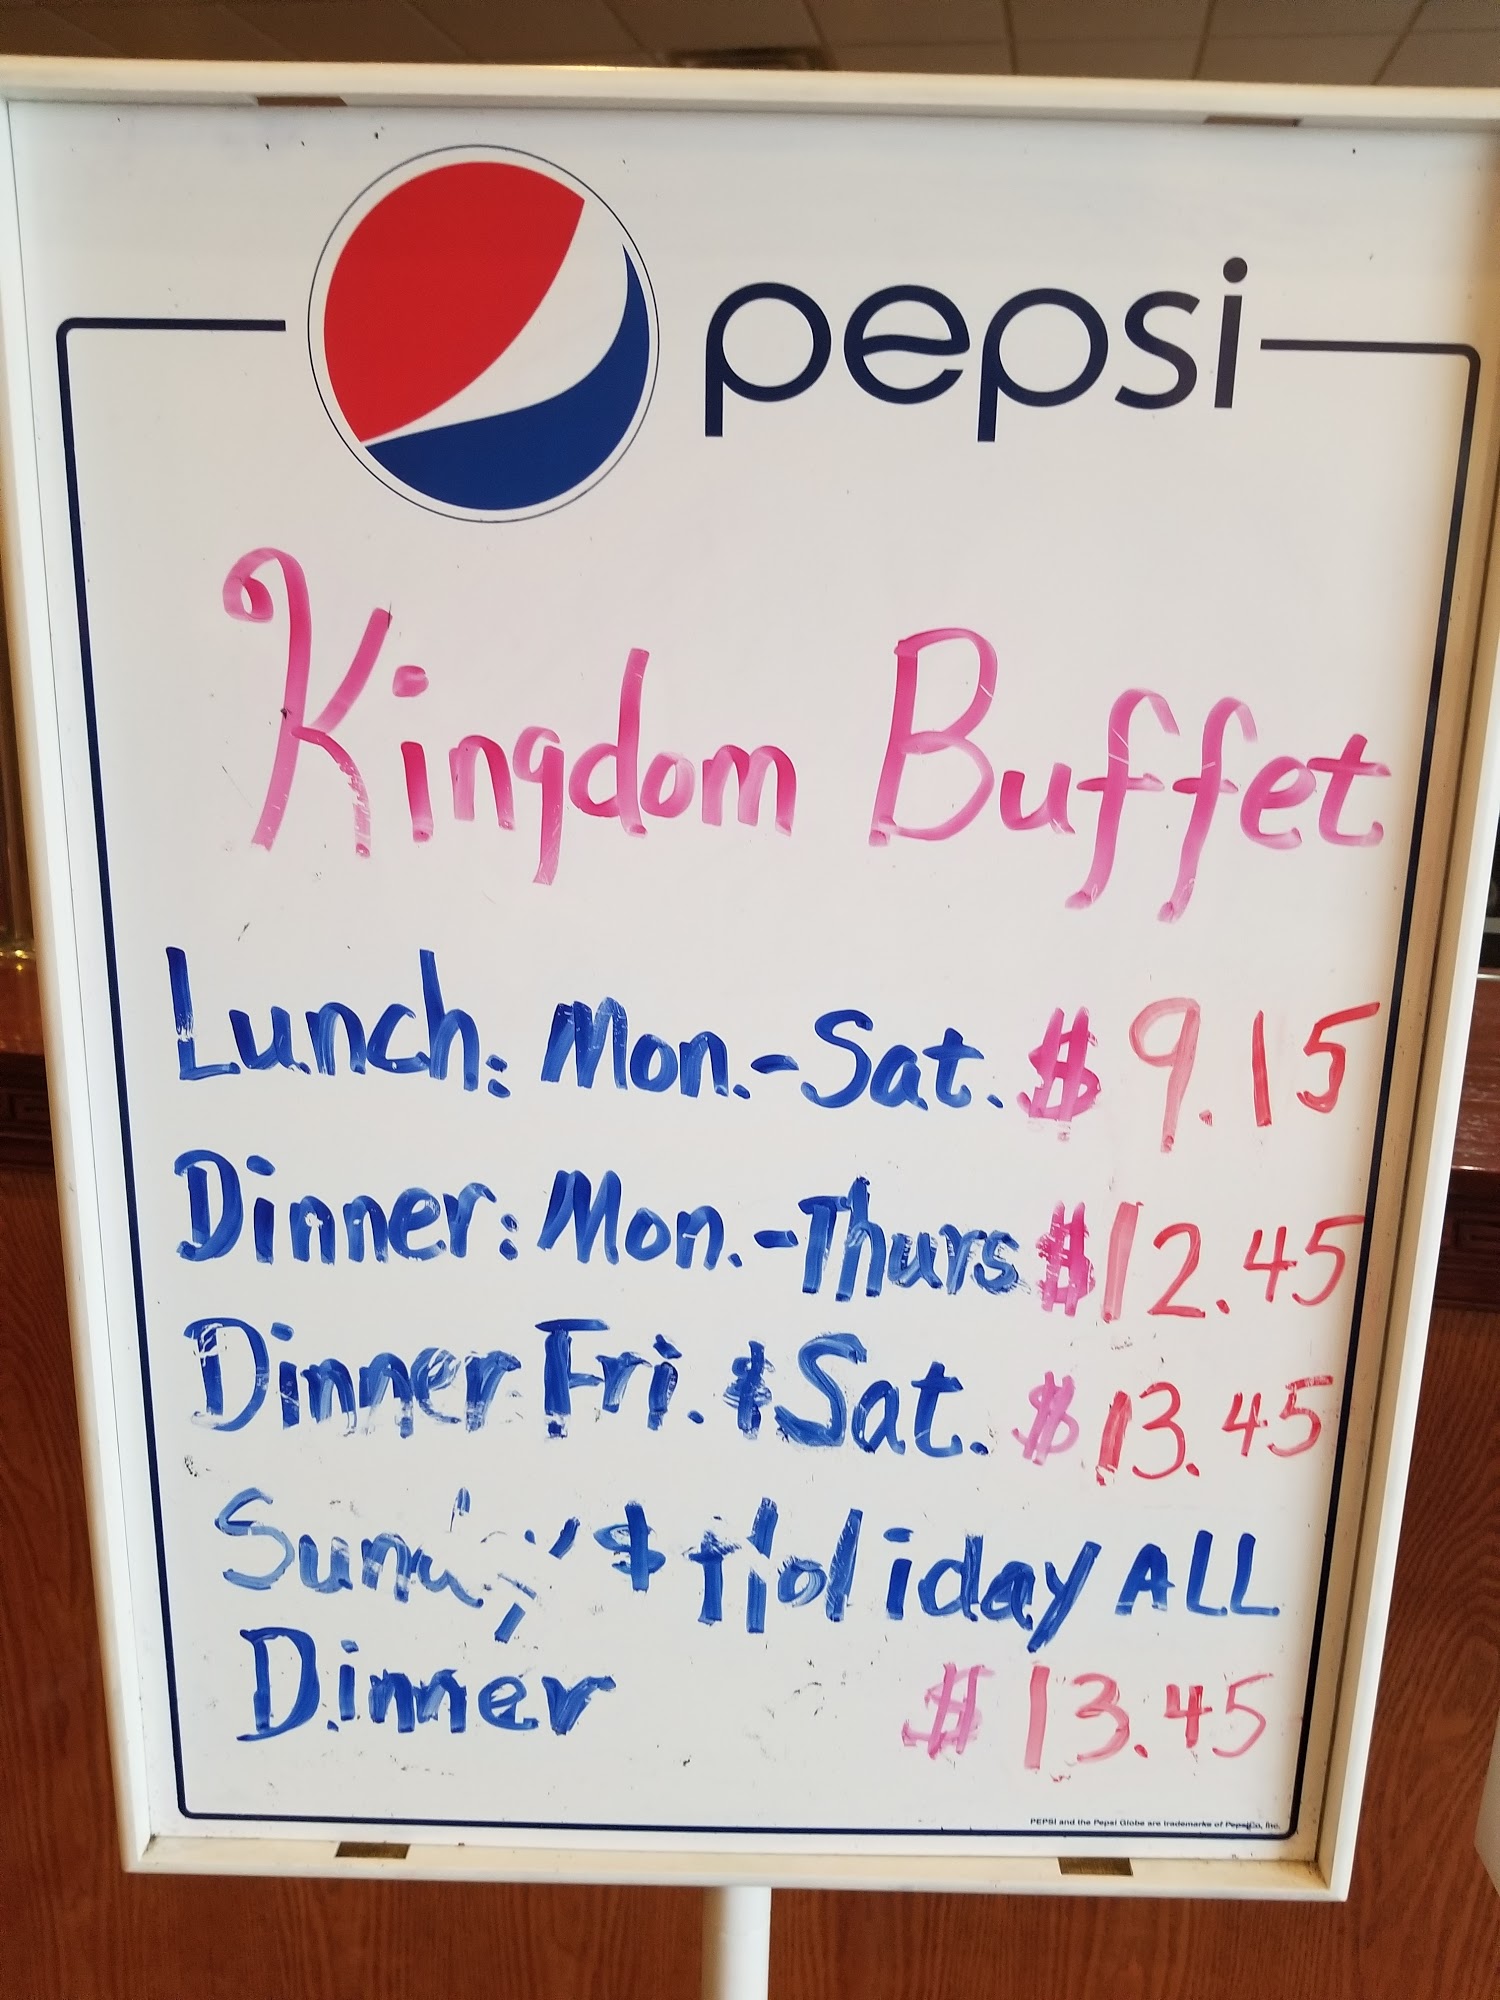 pepsi
Kingdom Buffet
Lunch: Mon.-Sat. $9.15
Dinner: Mon.-Thurs $12.45
Dinner Fri. & Sat. $13.45
Sunday & Holiday ALL
Dinner $13.45
PEPSI and the Pepsi Globe are trademarks of PepsiCo, Inc.